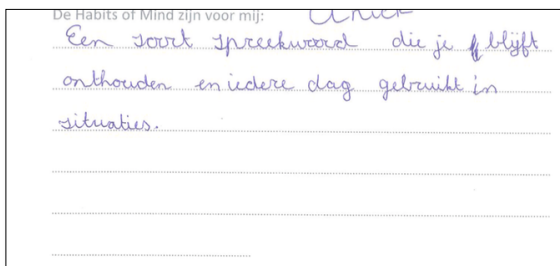 De Habits of Mind zijn voor mij: Uniek
Een soort spreekwoord die je blijft
onthouden en iedere dag gebruikt in
situaties.